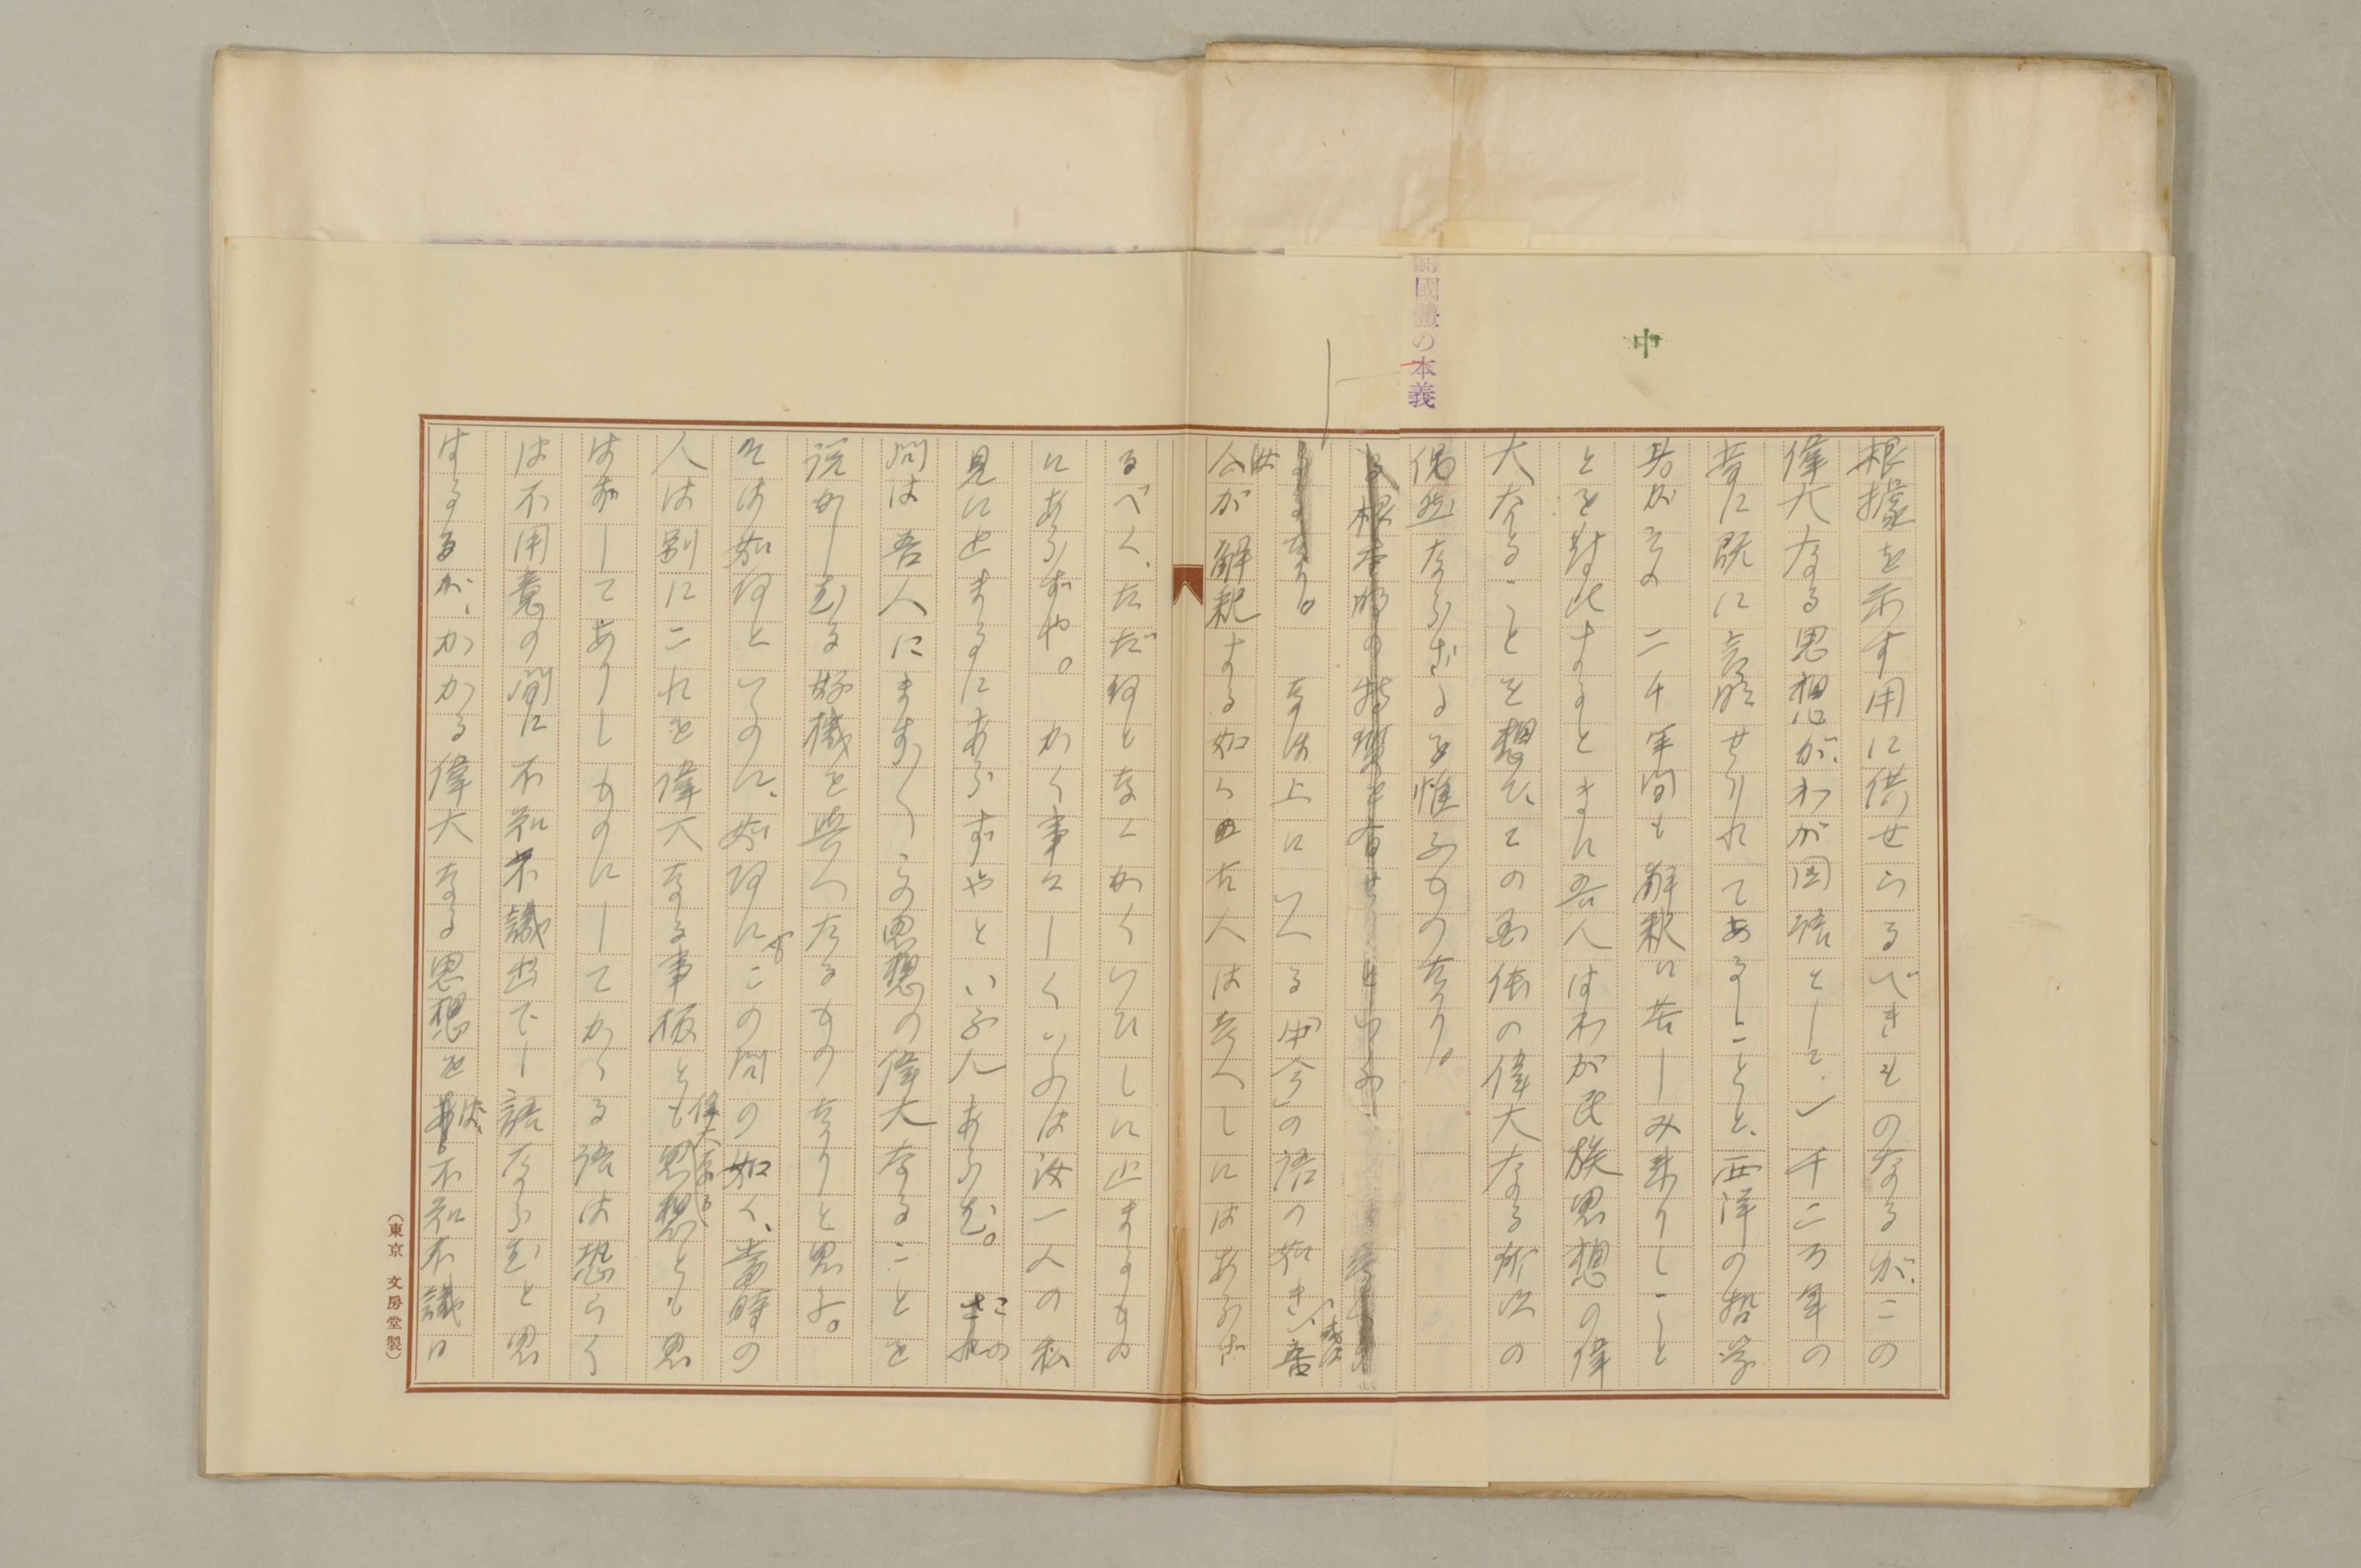 中
國體の本義
根據を示す用に供せらるべきものなるが、この
偉大なる思想が、わが国語として、千二百年の
昔に既に言明せられてあることと、西洋の哲学
者が二千年間も解釈に苦しみ来りしこと
とを対比するときに吾人はわが民族思想の偉
大なることを想ひ、この国体の偉大なる所以の
偶然ならざるを惟ふものなり。
る根本的の特質を有せりといふ
なり。 なほ上にいへる「中今」の語の如き、或は吾
人が解釈する如く古人は考へしにはあらざ
るべく、ただ何となくかくいひしに止まるもの
にあらずや。 かく事々しくいふは汝一人の私
見に止まるにあらずやといふ人あらむ。 この
問は吾人にますますこの思想の偉大なることを
説かしむる好機を與へたるものなりと思ふ。
そは如何といふに、如何にもこの問の如く、當時の
人は別にこれを偉大なる事柄とも偉大なる思想とも思
はずしてありしものにしてかゝる語は恐らく
は不用意の間に不知不識出でし語ならむと思
はるるが、かかる偉大なる思想をば不知不識に
(東京 文房堂製)